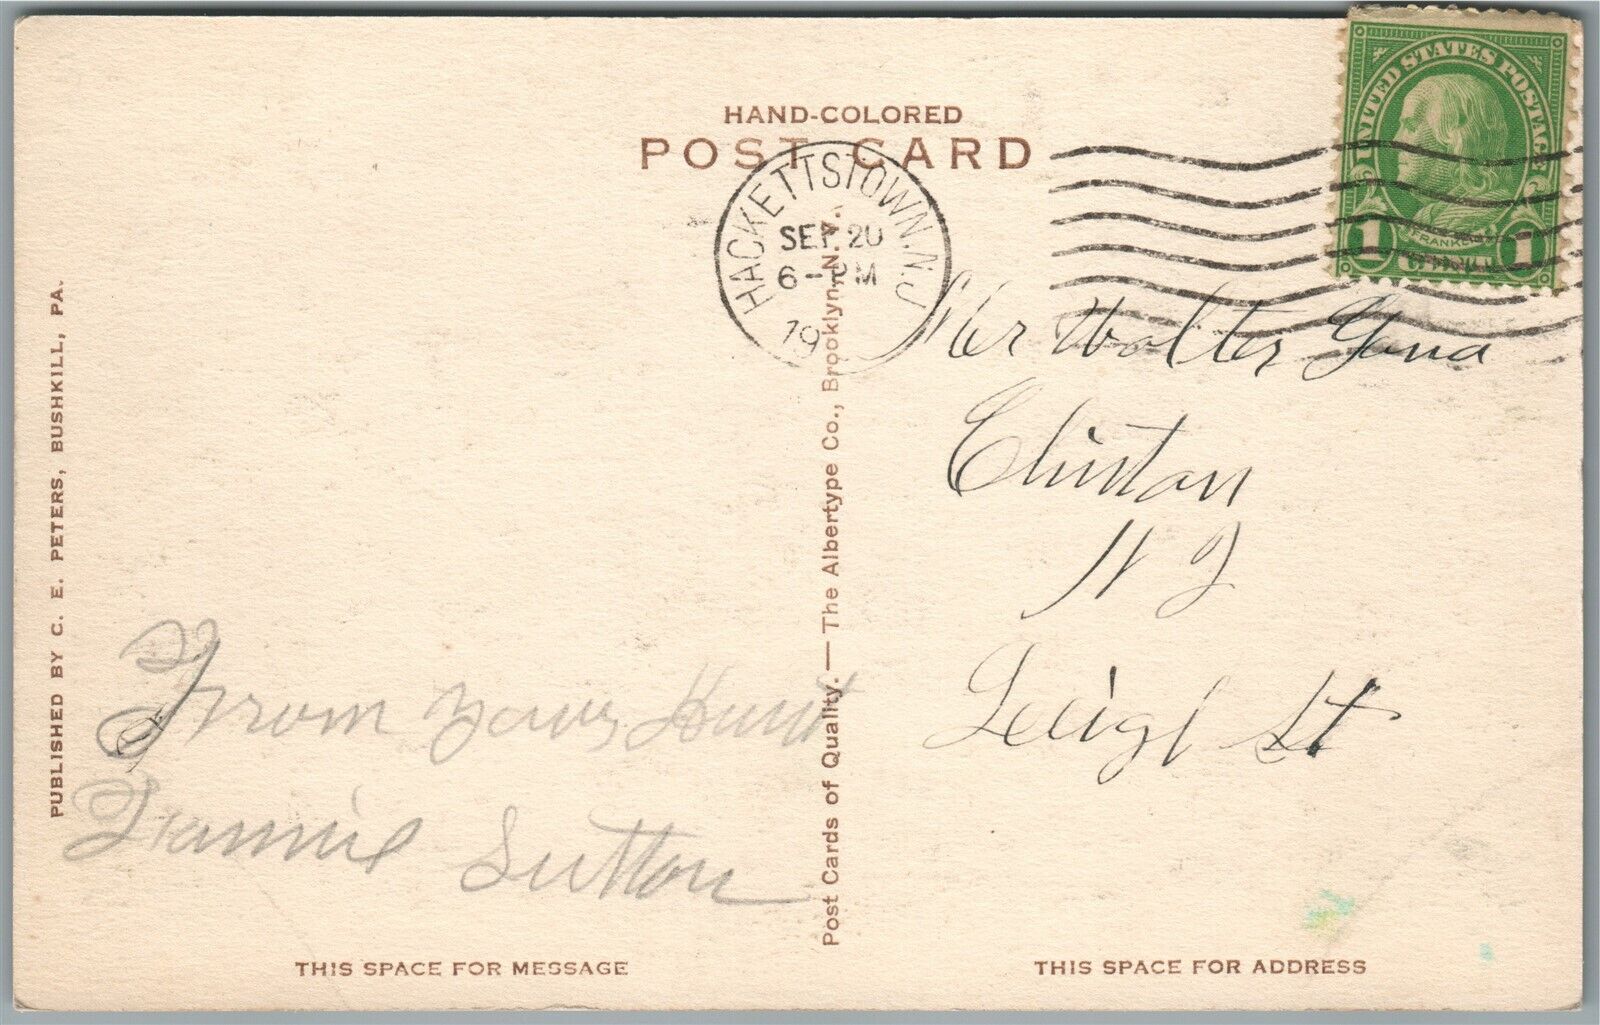 HAND-COLORED
POST CARD
UNITED STATES POSTAGE
FRANKLIN
1 1
HACKETTSTOWN. N.J.
SEP 20
6-PM
19
PUBLISHED BY C. E. PETERS, BUSHKILL, PA.
From your Aunt
Fannie Sutton
Post Cards of Quality. — The Albertype Co., Brooklyn, N. Y.
Mr Walter
Clinton
N J
Leigh St
THIS SPACE FOR MESSAGE
THIS SPACE FOR ADDRESS